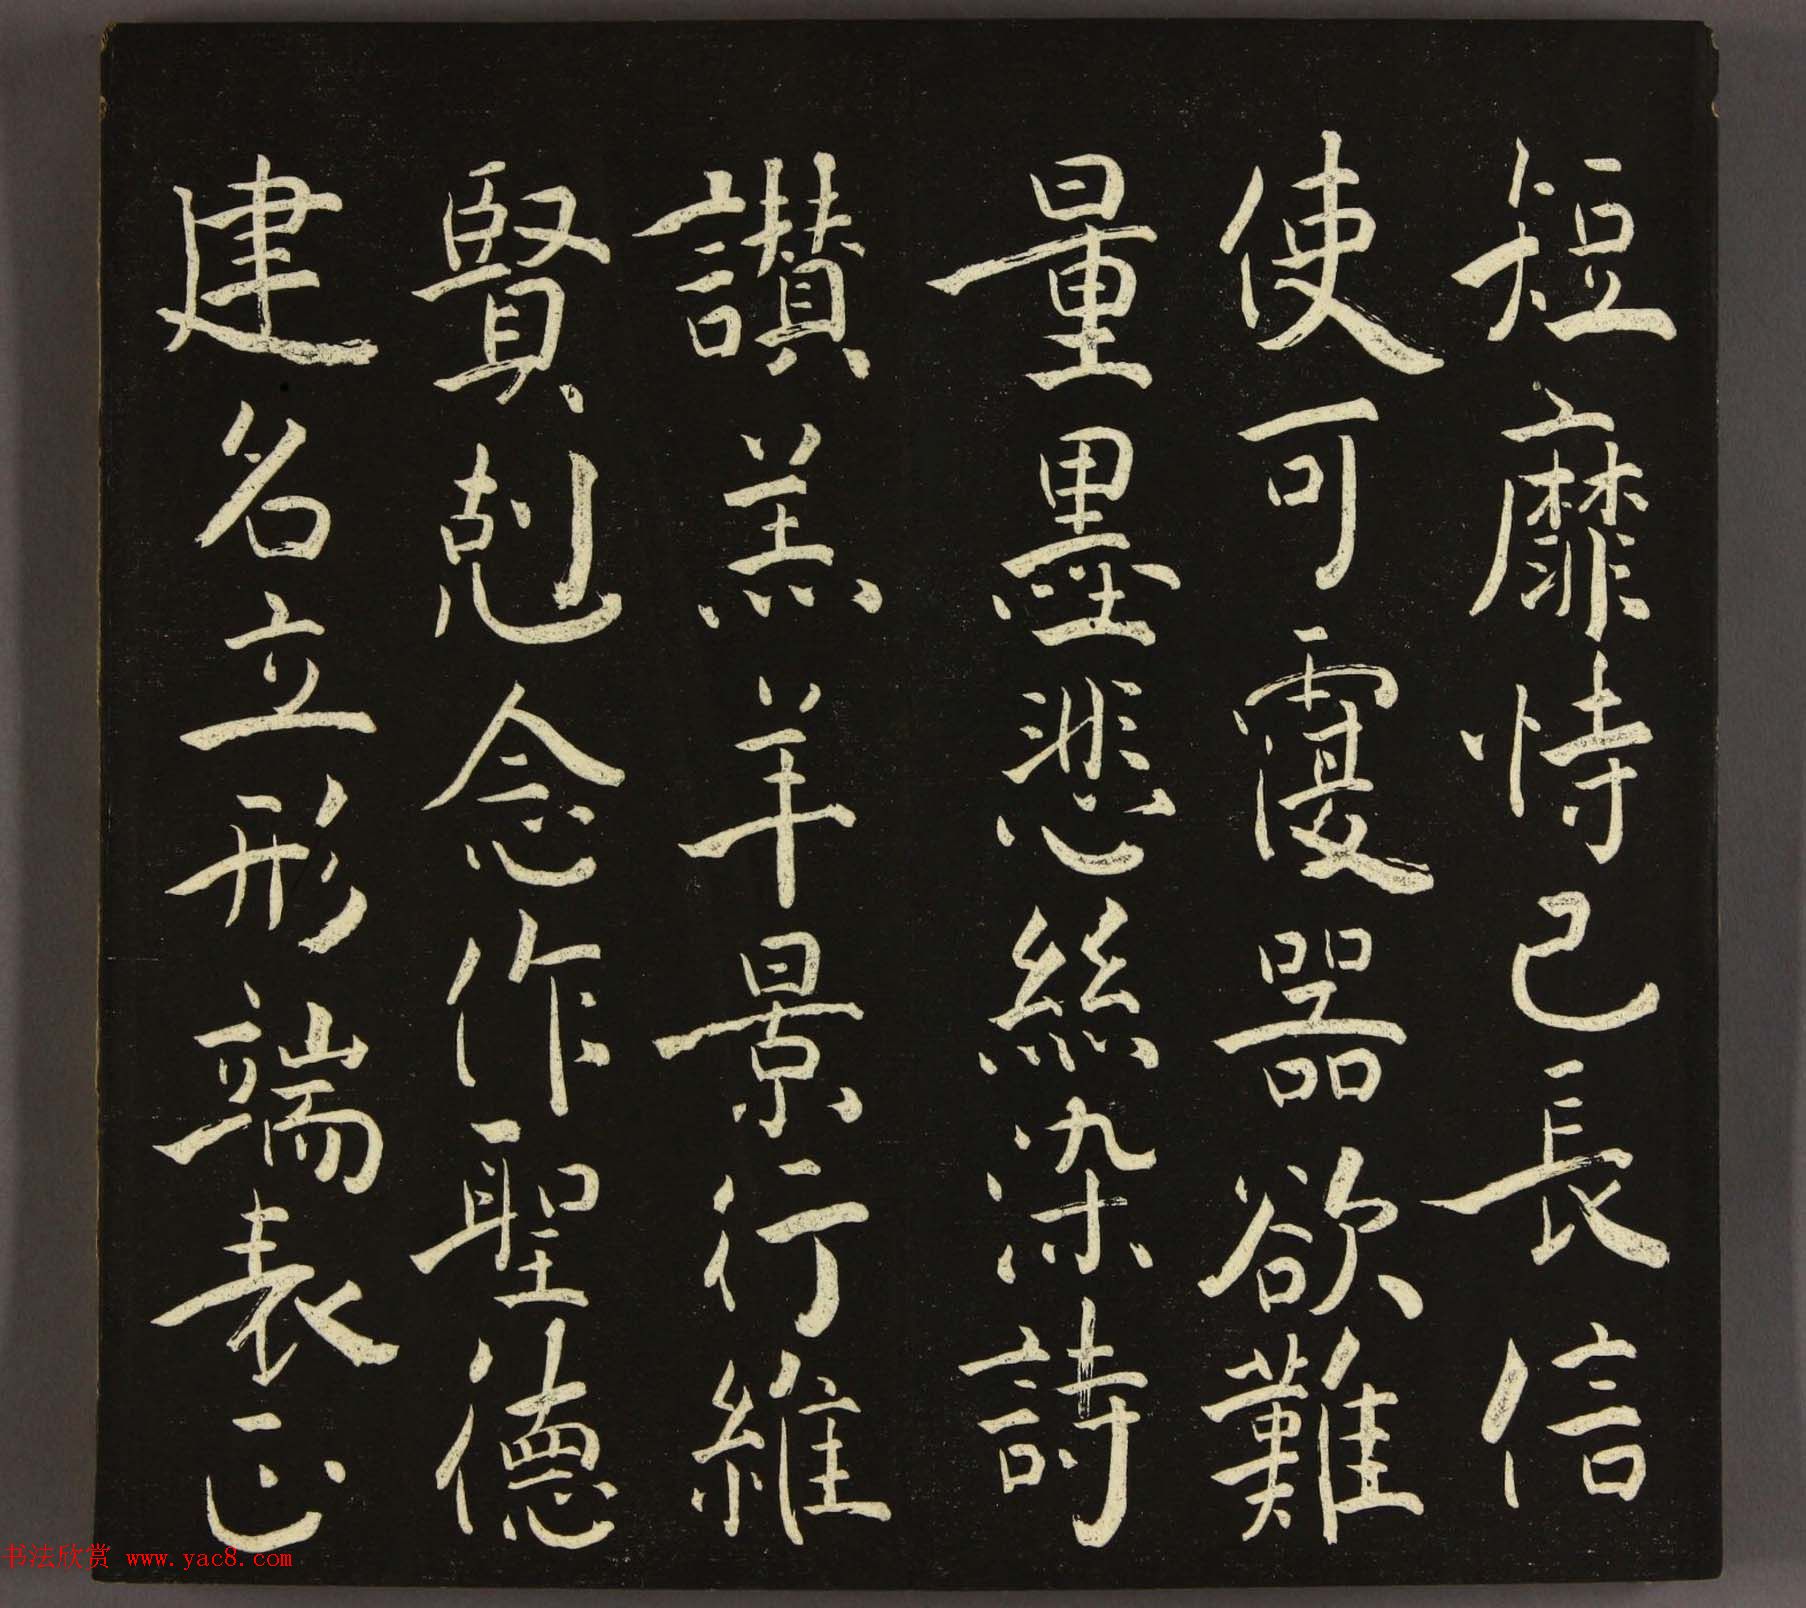 短靡恃己長信
使可覆器欲難
量墨悲絲染詩
讚羔羊景行維
賢剋念作聖德
建名立形端表正
书法欣赏 www.yac8.com